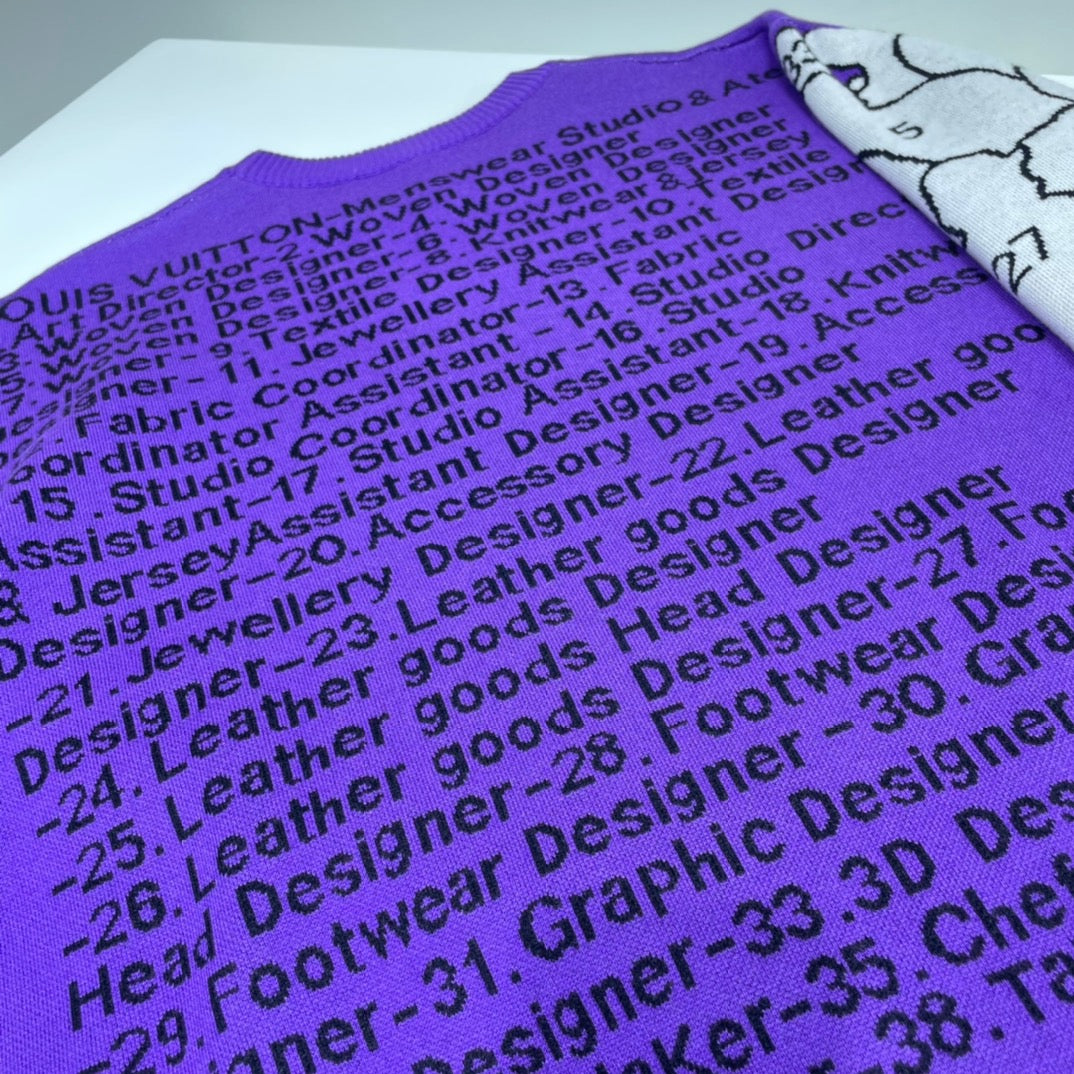 OUIS VUITTON-Menswear Studio & Ate
Art Director-2.Woven Designer
Woven Designer-4.Woven Designer
5.Woven Designer-6.Woven Designer
Designer-8.Knitwear &Jersey
Designer-9.Textile Designer-10.Textile
Designer-11.Jewellery Assistant Design
.Fabric Coordinator-13.Fabric
oordinator Assistant -14. Studio Direc
15.Studio Coordinator-16.Studio
Assistant-17.Studio Assistant-18.Knitw
& JerseyAssistant Designer-19.Access
Designer-20.Accessory Designer
-21.Jewellery Designer-22.Leather goo
Designer-23.Leather goods Designer
-24. Leather goods Designer
-25. Leather goods Head Designer
-26.Leather goods Designer-27.Foo
Head Designer-28. Footwear Desi
-29.Footwear Designer -30.Gra
igner-31.Graphic Designer
esigner-33.3D Des
aKer-35.Chef
-38.Ta
5
27